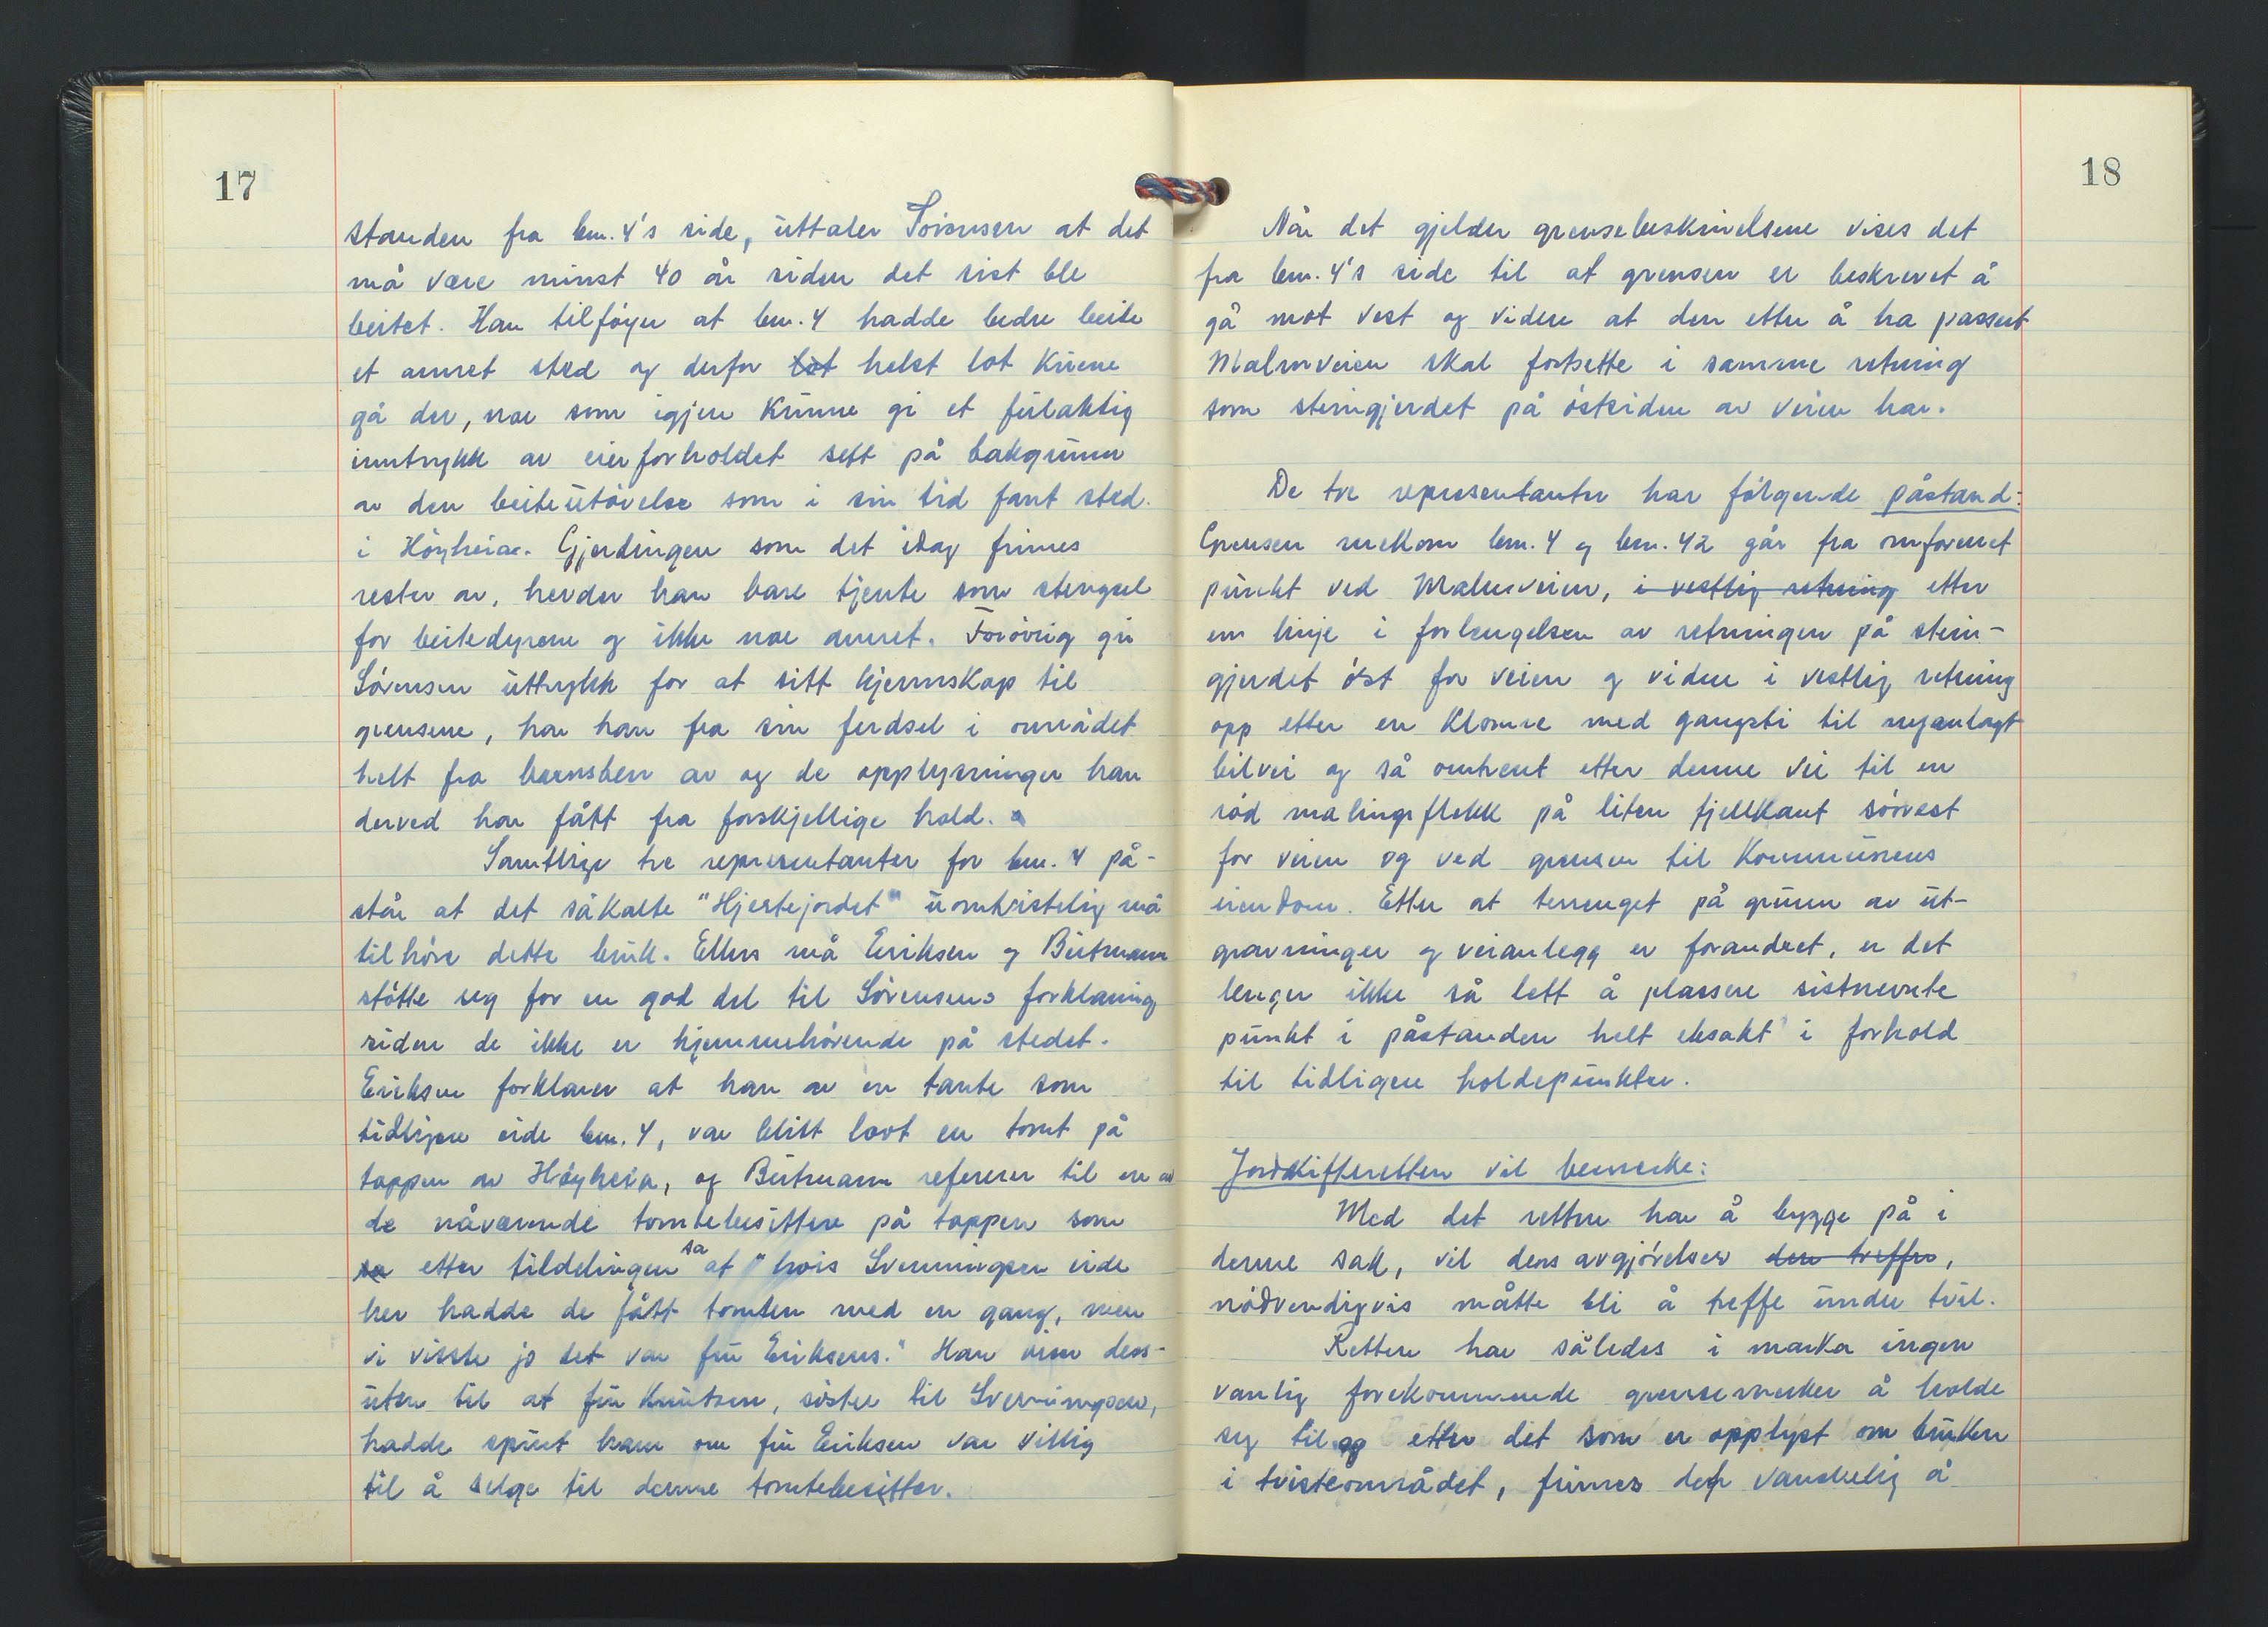 17
standen fra bnr. 4's side, uttaler Sörensen at det
må være minst 40 år siden det sist ble
beitet. Han tilføyer at bnr. 4 hadde bedre beite
et annet sted og derfor lot helst lot kuene
gå der, noe som igjen kunne gi et feilaktig
inntrykk av eierforholdet sett på bakgrunn
av den beiteutövelse som i sin tid fant sted
i Höyheia. Gjerdingen som det idag finnes
rester av, hevder han bare tjente som stengsel
for beitedyrene og ikke noe annet. Forövrig gir
Sörensen uttrykk for at sitt kjennskap til
grensene, har han fra sin ferdsel i området
helt fra barnsben av og de opplysninger han
derved har fått fra forskjellige hold.
Samtlige tre representanter for bnr. 4 på-
står at det såkalte "Hjertejordet" uomtvistelig må
tilhöre dette bruk. Ellers må Eriksen og Beitmann
stötte seg for en god del til Sörensens forklaring
siden de ikke er hjemmehörende på stedet.
Eriksen forklarer at han av en tante som
tidligere eide bnr. 4, var blitt lovt en tomt på
toppen av Höyheia, og Beitmann refererer til en av
de nåværende tomtebesittere på toppen som
sa etter tildelingen sa at "hvis Svenningsen eide
her hadde de fått tomten med en gang, men
vi visste jo det var fru Eriksens." Han viser dess-
uten til at fru Knutsen, söster til Svenningsen,
hadde spurt ham om fru Eriksen var villig
til å selge til denne tomtebesitter.
18
Når det gjelder grensebeskrivelsene vises det
fra bnr. 4's side til at grensen er beskrevet å
gå mot vest og videre at den etter å ha passert
Malmveien skal fortsette i samme retning
som steingjerdet på östsiden av veien har.
De tre representanter har følgende påstand:
Grensen mellom bnr. 4 og bnr. 42 går fra omforenet
punkt ved Malmveien, i vestlig retning etter
en linje i forlengelsen av retningen på stein-
gjerdet öst for veien og videre i vestlig retning
opp etter en klomre med gangsti til nyanlagt
bilvei og så omtrent etter denne vei til en
röd malingsflekk på liten fjellkant sörvest
for veien og ved grensen til Kommunens
eiendom. Etter at terrenget på grunn av ut-
gravninger og veianlegg er forandret, er det
lenger ikke så lett å plassere sistnevnte
punkt i påstanden helt eksakt i forhold
til tidligere holdepunkter.
Jordskifteretten vil bemerke:
Med det retten har å bygge på i
denne sak, vil dens avgjörelser den treffer,
nödvendigvis måtte bli å treffe under tvil.
Retten har således i marka ingen
vanlig forekommende grensemerker å holde
seg til og etter det som er opplyst om bruken
i tvisteområdet, finnes det vanskelig å